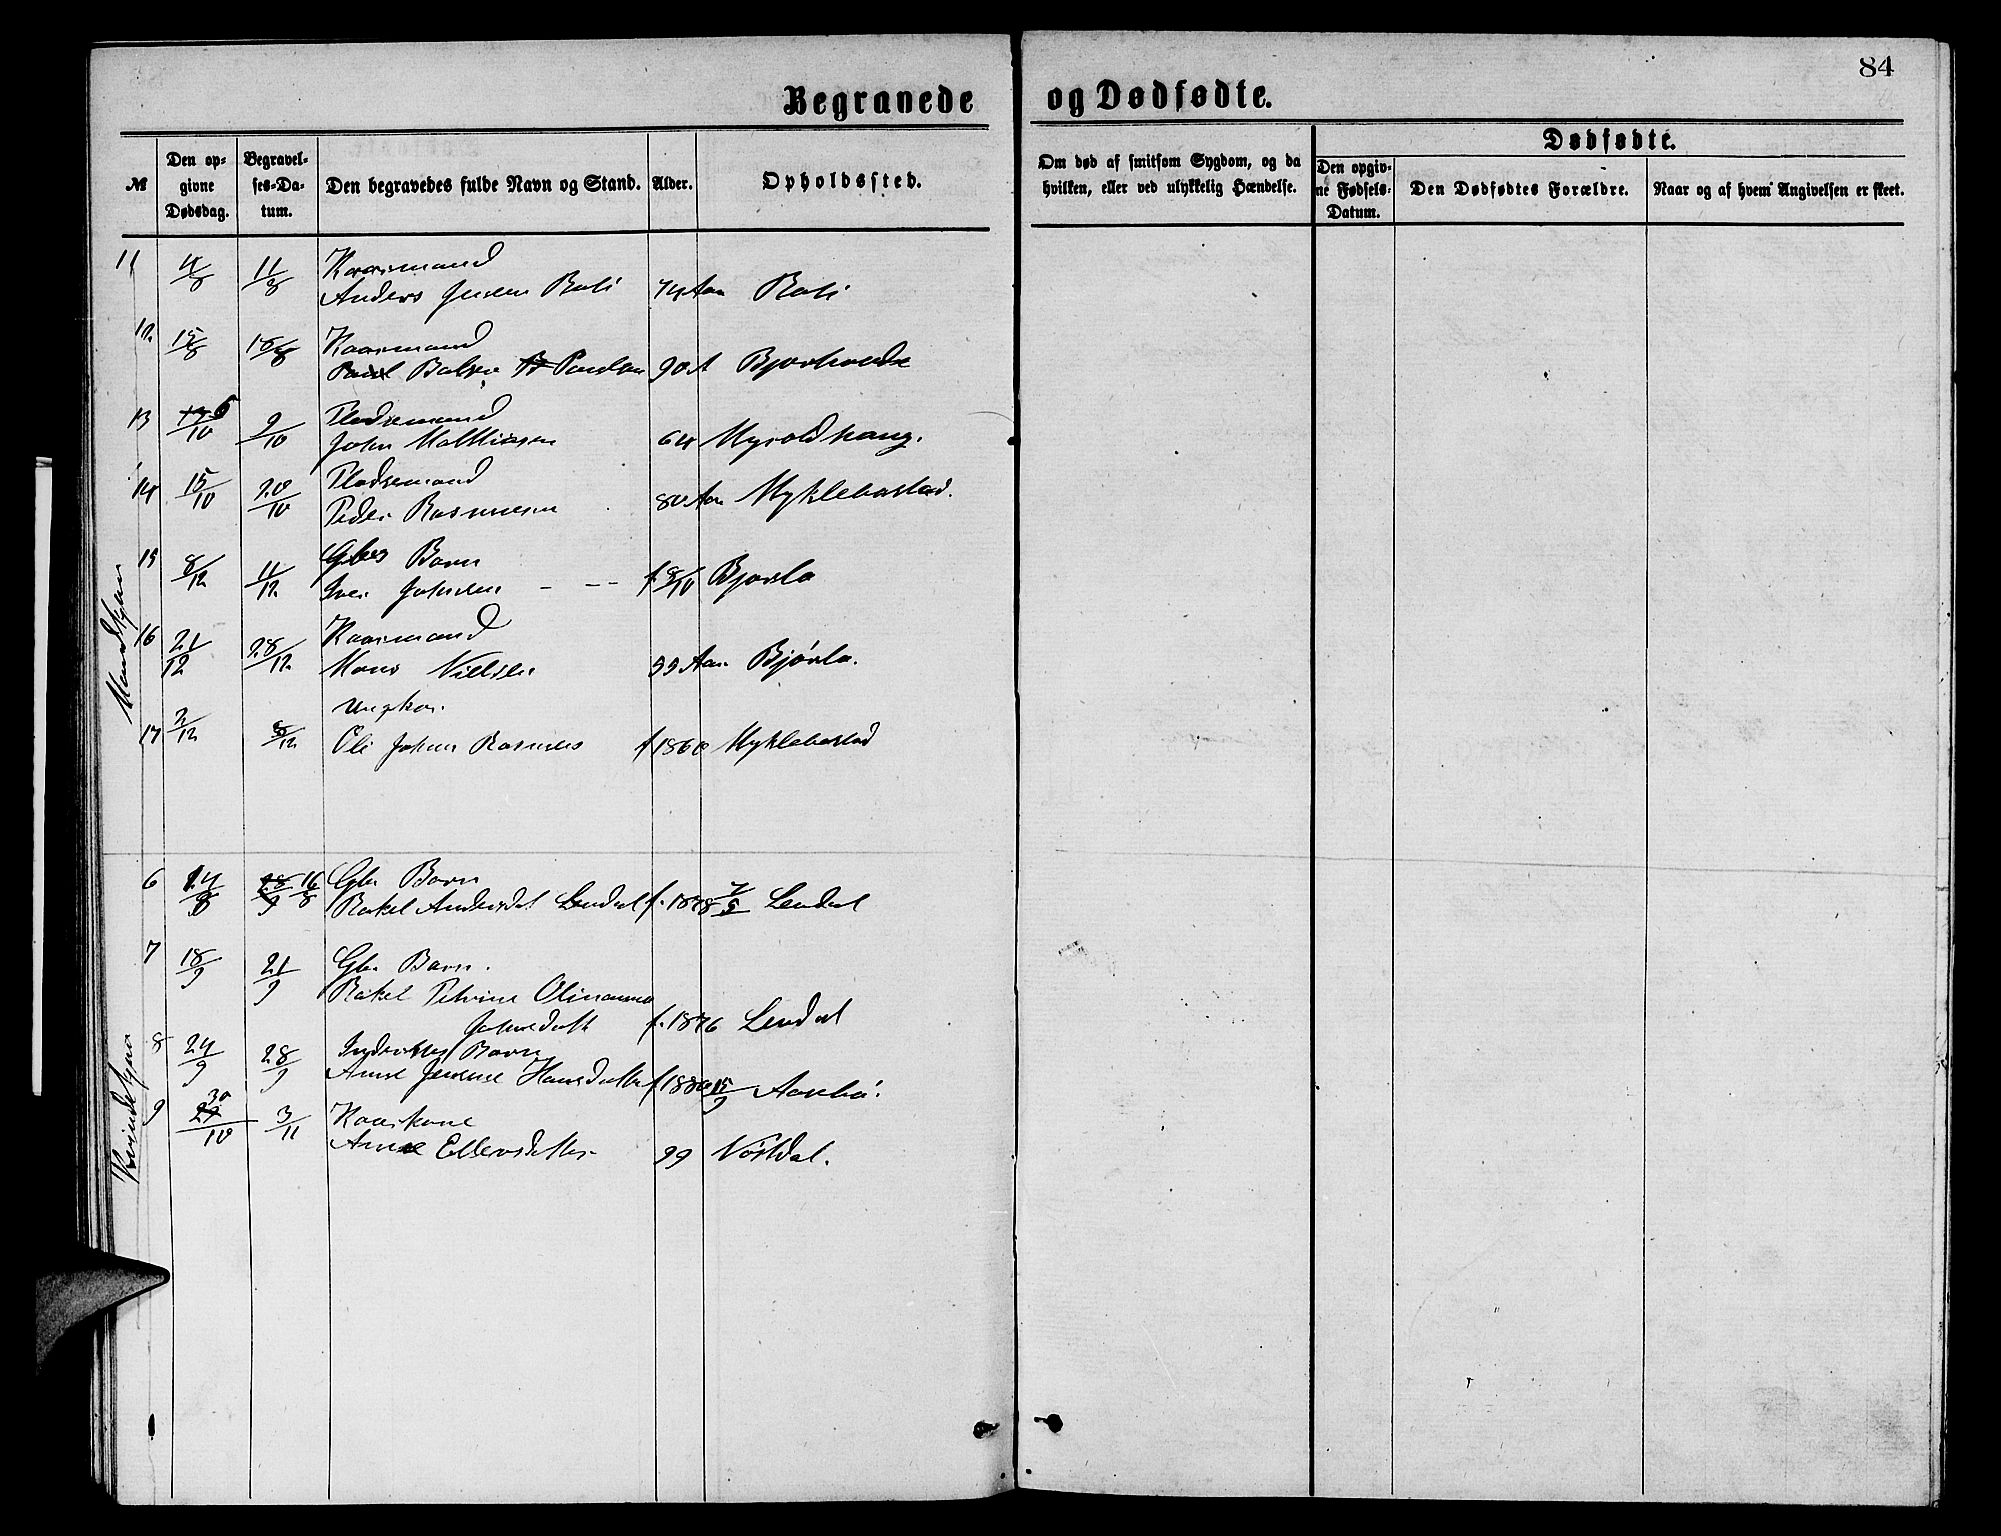 84
Begravede og Dødfødte.
№
Den opgivne Dødsdag.
Begravelses-Datum.
Den begravedes fulde Navn og Stand.
Alder.
Opholdssted.
Om død af smitsom Sygdom, og da hvilken, eller ved ulykkelig Hændelse.
Dødfødte.
Den opgivne Fødsels-Datum.
Den Dødfødtes Forældre.
Naar og af hvem Angivelsen er skeet.
Mandkjøn
11 4/8 11/8 Kaarmand
Anders Jensen 74 Aar
12 18/8 Kaarmand
Paulsen 90 A
13 6/10 9/10 Pladsemand
John Matthiasen 64
14 15/10 20/10 Pladsemand
Peder Rasmussen 80 Aar Myklebostad.
15 8/12 11/12 Gbes Barn
Iver Johnsen - -- f. 8/10 Bjørlo
16 21/12 28/12 Kaarmand
Mons Nielsen Aar Bjørlo.
17 2/12 8/12 Ungkar.
Ole Johan Rasmus f 1860 Myklebostad
Kvindekjøn
6 14/8 16/8 Gbr Barn
Rakel Andersdt Lendal f. 1878 7/5 Lendal
7 18/9 21/9 Gbr Barn.
Rakel Petrine Olinanna
Johnsdatt f. 1876 Lendal
8 24/9 28/9 Inderstes Barn
Anne Jensine Hansdatter f 1880 15/9
9 30/10 3/11 Kaarkone
Anne Ellevsdatter Nøstdal.